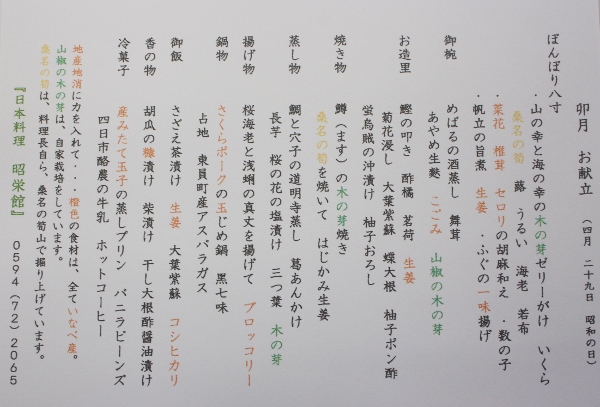 卯月　お献立　（四月　二十九日　昭和の日）
ぼんぼり八寸
・山の幸と海の幸の木の芽ゼリーがけ　いくら
桑名の筍　蕗　うるい　海老　若布
・菜花　椎茸　セロリの胡麻和え　・数の子
・帆立の旨煮　生姜　・ふぐの一味揚げ
御椀　めばるの酒蒸し　舞茸
あやめ生麩　こごみ　山椒の木の芽
お造里　鰹の叩き　酢橘　茗荷　生姜
菊花浸し　大葉紫蘇　蝶大根　柚子ポン酢
蛍烏賊の沖漬け　柚子おろし
焼き物　鱒（ます）の木の芽焼き
桑名の筍を焼いて　はじかみ生姜
蒸し物　鯛と穴子の道明寺蒸し　葛あんかけ
長芋　桜の花の塩漬け　三つ葉　木の芽
揚げ物　桜海老と浅蜊の真丈を揚げて　ブロッコリー
鍋物　さくらポークの玉じめ鍋　黒七味
占地　東員町産アスパラガス
御飯　さざえ茶漬け　生姜　大葉紫蘇　コシヒカリ
香の物　胡瓜の糠漬け　柴漬け　干し大根酢醤油漬け
冷菓子　産みたて玉子の蒸しプリン　バニラビーンズ
四日市酪農の牛乳　ホットコーヒー
地産地消に力を入れて・・・橙色の食材は、全ていなべ産。
山椒の木の芽は、自家栽培をしています。
桑名の筍は、料理長自ら、桑名の筍山で掘り上げています。
『日本料理　昭栄館』　０５９４（７２）２０６５